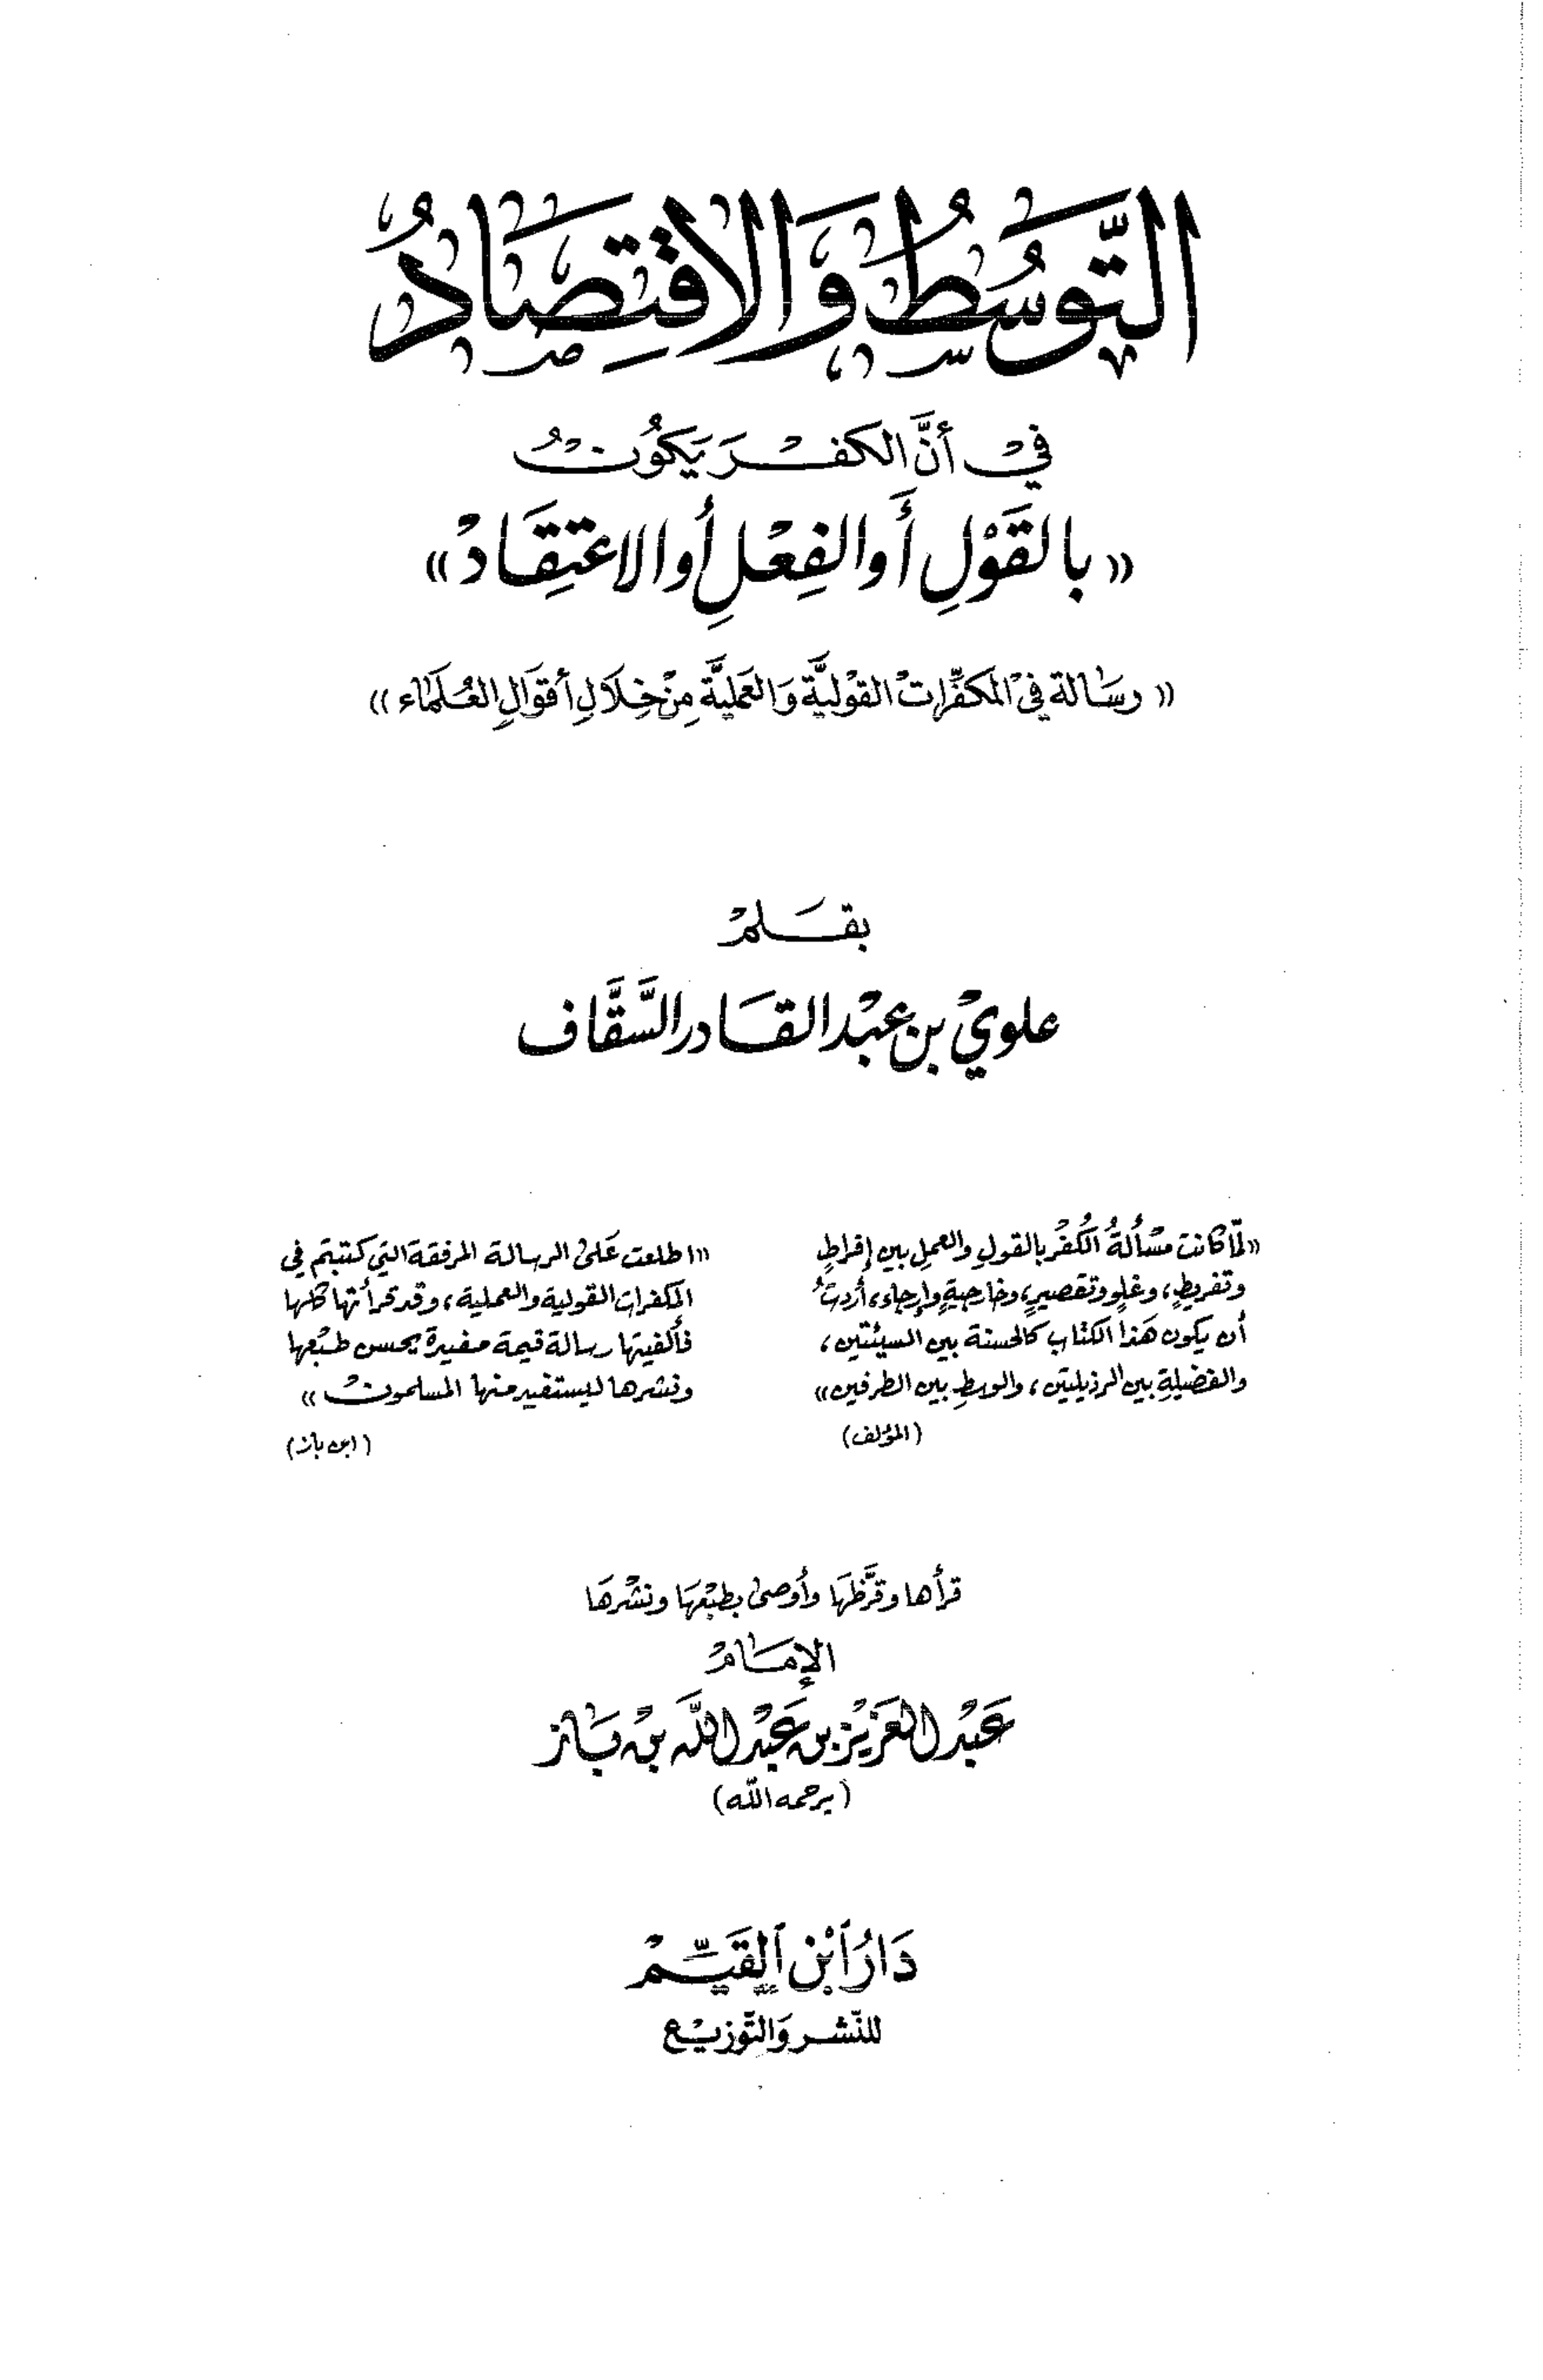 التَّوَسُّطُ وَالاقْتِصَادُ
فِي أَنَّ الكفْرَ يَكُونُ
«بِالقَوْلِ أَو الفِعْلِ أَو الاعْتِقَادْ»
«رسَالة في المكفِّرات القوْليَّة وَالعَمليَّة مِنْ خِلَالِ أقوَالِ العُلَمَاء»
بقَلمْ
علوي بن عبْد القَادر السَّقَّاف
«لمّا كانت مسْألةُ الكُفْر بالقولِ والعملِ بين إفراطٍ
وتفريطٍ، وغلوٍ وتقصيرٍ، وخارجيةٍ وإرجاء، أردتُ
أن يكون هَذا الكتاب كالحسنة بين السيئتين،
والفضيلةِ بين الرذيلتين، والوسطِ بين الطرفين»
(المؤلف)
«اطلعت عَلى الرسالة المرفقة التي كتبتم في
المكفرات القولية والعملية، وقد قرأتها كلها
فألفيتها رسالة قيمة مفيرة يحسن طبْعها
ونشرها ليستفيد منها المسلمون»
(ابن باز)
قرأها وقرَّظهَا وأوصى بطبْعهَا ونشْرهَا
الإمَامْ
عَبْد العَزيْز بن عَبْد اللَّه بنْ بَاز
(يرحمه الله)
دَارُ ابْن القَيِّمْ
للنّشر وَالتّوزيْع